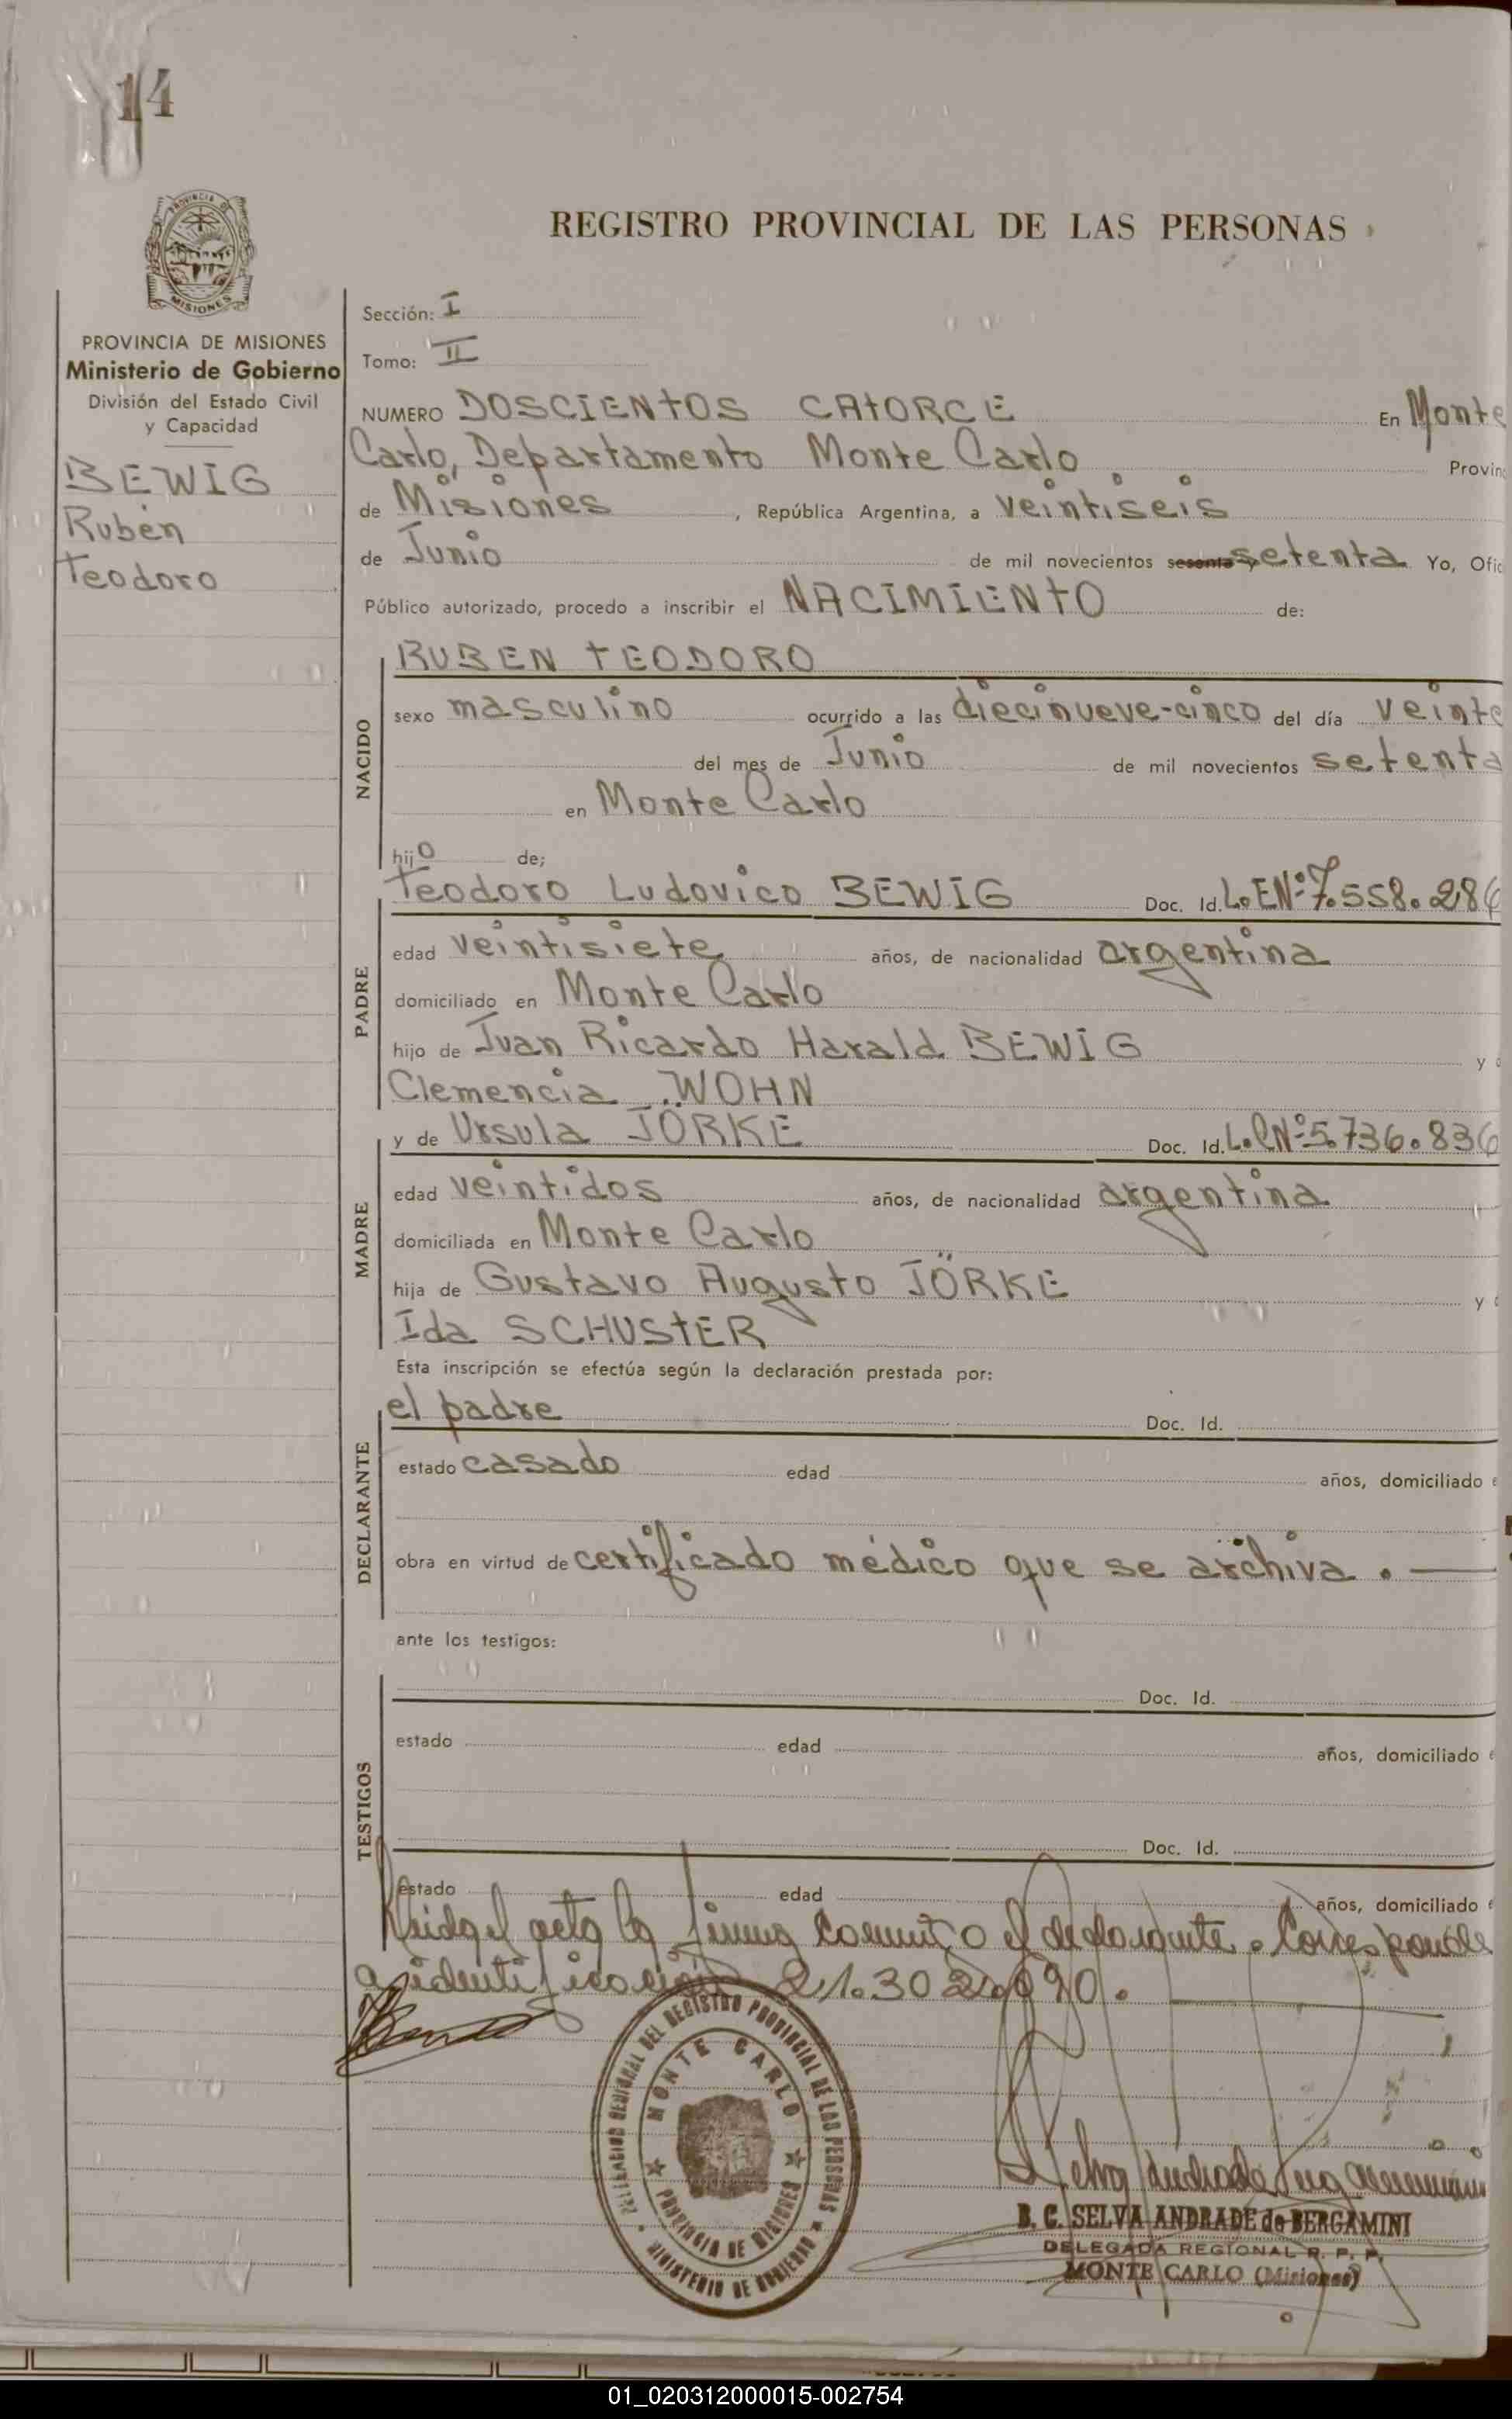 14
PROVINCIA DE
MISIONES
REGISTRO PROVINCIAL DE LAS PERSONAS
PROVINCIA DE MISIONES
Ministerio de Gobierno
División del Estado Civil
y Capacidad
BEWIG
Rubén
Teodoro
Sección: I
Tomo: II
NUMERO DOSCIENTOS CATORCE En Monte
Carlo, Departamento Monte Carlo Provin
de Misiones, República Argentina, a veintiseis
de Junio de mil novecientos sesenta y setenta Yo, Ofic
Público autorizado, procedo a inscribir el NACIMIENTO de:
NACIDO
RUBEN TEODORO
sexo masculino ocurrido a las diecinueve-cinco del día veinte
del mes de Junio de mil novecientos setenta
en Monte Carlo
hijo de;
PADRE
Teodoro Ludovico BEWIG Doc. Id. L.ENº7.558.286
edad veintisiete años, de nacionalidad argentina
domiciliado en Monte Carlo
hijo de Juan Ricardo Harald BEWIG y
Clemencia WOHN
MADRE
y de Ursula JÖRKE Doc. Id. L.CNº5.736.836
edad veintidos años, de nacionalidad argentina
domiciliada en Monte Carlo
hija de Gustavo Augusto JÖRKE y
Ida SCHUSTER
Esta inscripción se efectúa según la declaración prestada por:
DECLARANTE
el padre Doc. Id.
estado casado edad años, domiciliado
obra en virtud de certificado médico que se archiva.
ante los testigos:
TESTIGOS
Doc. Id.
estado edad años, domiciliado
Doc. Id.
estado edad años, domiciliado
leida el acta la firma conmigo el declarante. Corresponde
a identificación 21.302.090.
DELEGACION REGIONAL DEL REGISTRO PROVINCIAL DE LAS PERSONAS
MINISTERIO DE GOBIERNO
MONTE CARLO
PROVINCIA DE MISIONES
B. C. SELVA ANDRADE de BERGAMINI
DELEGADA REGIONAL R. P. P.
MONTE CARLO (Misiones)
01_020312000015-002754